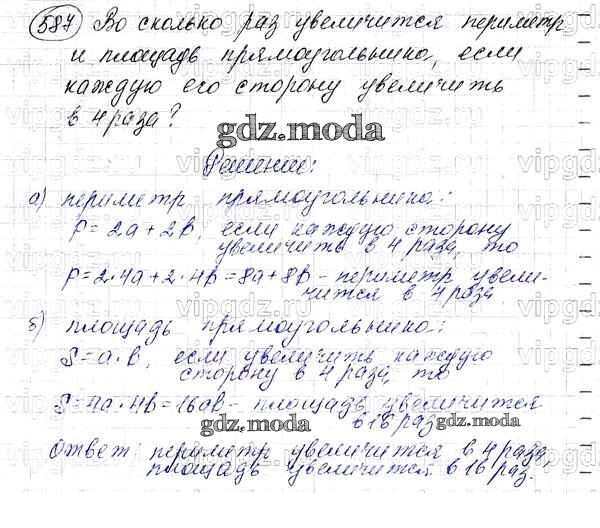 587 Во сколько раз увеличится периметр
и площадь прямоугольника, если
каждую его сторону увеличить
в 4 раза?
gdz.moda
Решение:
а) периметр прямоугольника:
P=2a+2b, если каждую сторону
увеличить в 4 раза, то
P=2·4a+2·4b=8a+8b - периметр увели-
чится в 4 раза.
б) площадь прямоугольника:
S=a·b, если увеличить каждую
сторону в 4 раза, то
S=4a·4b=16ab - площадь увеличится
в 16 раз
gdz.moda
Ответ: периметр увеличится в 4 раза,
площадь увеличится в 16 раз.